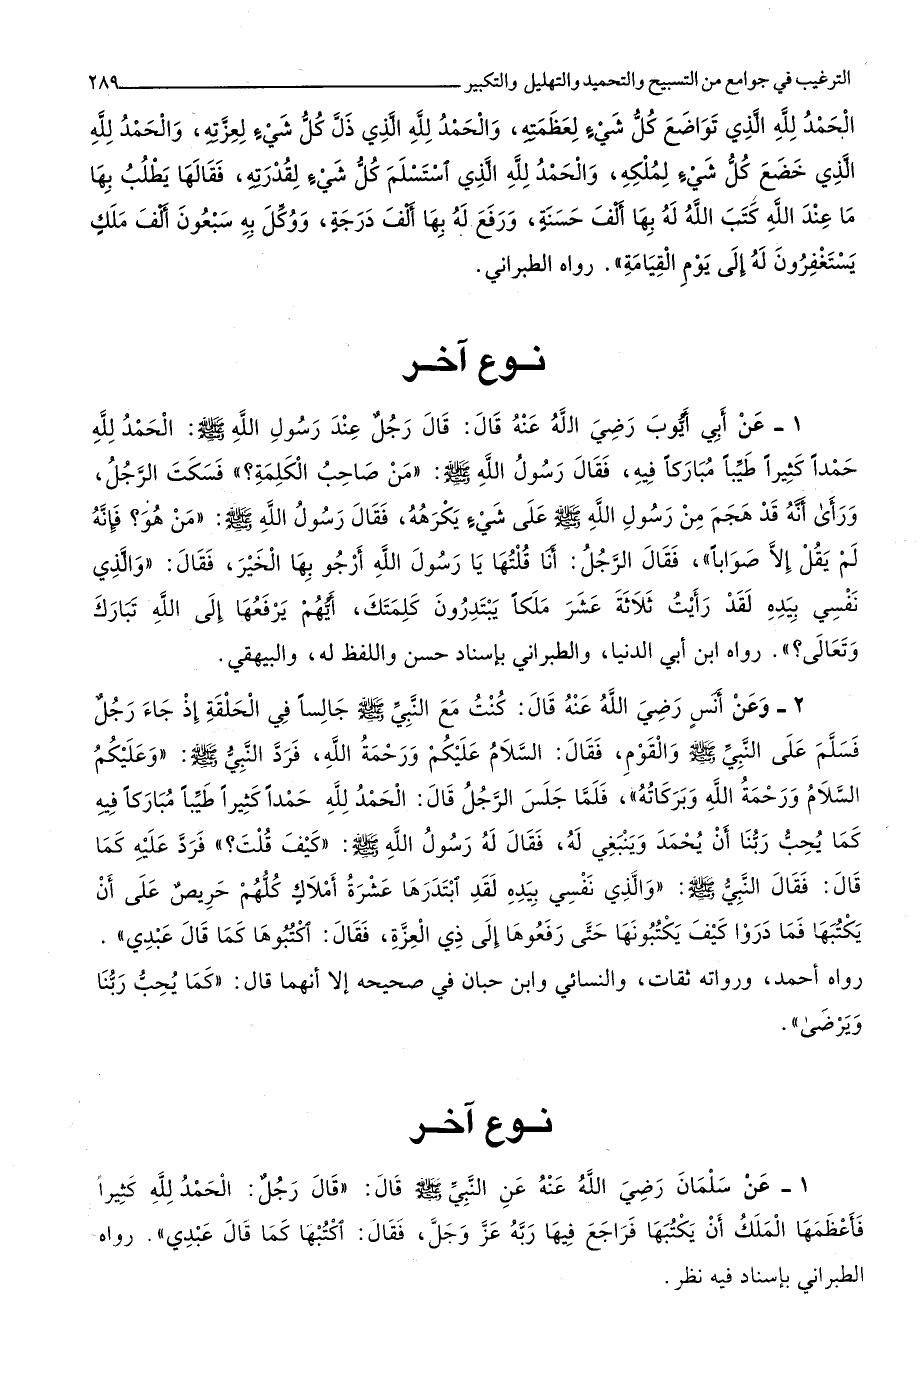 الترغيب في جوامع من التسبيح والتحميد والتهليل والتكبير ٢٨٩
الْحَمْدُ لِلَّهِ الَّذِي تَوَاضَعَ كُلُّ شَيْءٍ لِعَظَمَتِهِ، وَالْحَمْدُ لِلَّهِ الَّذِي ذَلَّ كُلُّ شَيْءٍ لِعِزَّتِهِ، وَالْحَمْدُ لِلَّهِ
الَّذِي خَضَعَ كُلُّ شَيْءٍ لِمُلْكِهِ، وَالْحَمْدُ لِلَّهِ الَّذِي ٱسْتَسْلَمَ كُلُّ شَيْءٍ لِقُدْرَتِهِ، فَقَالَهَا يَطْلُبُ بِهَا
مَا عِنْدَ اللَّهِ كَتَبَ اللَّهُ لَهُ بِهَا أَلْفَ حَسَنَةٍ، وَرَفَعَ لَهُ بِهَا أَلْفَ دَرَجَةٍ، وَوُكِّلَ بِهِ سَبْعُونَ أَلْفَ مَلَكٍ
يَسْتَغْفِرُونَ لَهُ إِلَى يَوْمِ الْقِيَامَةِ». رواه الطبراني.
نـوع آخـر
١ ـ عَنْ أَبِي أَيُّوبَ رَضِيَ اللَّهُ عَنْهُ قَالَ: قَالَ رَجُلٌ عِنْدَ رَسُولِ اللَّهِ ﷺ: الْحَمْدُ لِلَّهِ
حَمْداً كَثِيراً طَيِّباً مُبَارَكاً فِيهِ، فَقَالَ رَسُولُ اللَّهِ ﷺ: «مَنْ صَاحِبُ الْكَلِمَةِ؟» فَسَكَتَ الرَّجُلُ،
وَرَأَىٰ أَنَّهُ قَدْ هَجَمَ مِنْ رَسُولِ اللَّهِ ﷺ عَلَى شَيْءٍ يَكْرَهُهُ، فَقَالَ رَسُولُ اللَّهِ ﷺ: «مَنْ هُوَ؟ فَإِنَّهُ
لَمْ يَقُلْ إِلاَّ صَوَاباً»، فَقَالَ الرَّجُلُ: أَنَا قُلْتُهَا يَا رَسُولَ اللَّهِ أَرْجُو بِهَا الْخَيْرَ، فَقَالَ: «وَالَّذِي
نَفْسِي بِيَدِهِ لَقَدْ رَأَيْتُ ثَلاَثَةَ عَشَرَ مَلَكاً يَبْتَدِرُونَ كَلِمَتَكَ، أَيُّهُمْ يَرْفَعُهَا إِلَى اللَّهِ تَبَارَكَ
وَتَعَالَى؟». رواه ابن أبي الدنيا، والطبراني بإسناد حسن واللفظ له، والبيهقي.
٢ ـ وَعَنْ أَنَسٍ رَضِيَ اللَّهُ عَنْهُ قَالَ: كُنْتُ مَعَ النَّبِيِّ ﷺ جَالِساً فِي الْحَلْقَةِ إِذْ جَاءَ رَجُلٌ
فَسَلَّمَ عَلَى النَّبِيِّ ﷺ وَالْقَوْمِ، فَقَالَ: السَّلاَمُ عَلَيْكُمْ وَرَحْمَةُ اللَّهِ، فَرَدَّ النَّبِيُّ ﷺ: «وَعَلَيْكُمُ
السَّلاَمُ وَرَحْمَةُ اللَّهِ وَبَرَكَاتُهُ»، فَلَمَّا جَلَسَ الرَّجُلُ قَالَ: الْحَمْدُ لِلَّهِ حَمْداً كَثِيراً طَيِّباً مُبَارَكاً فِيهِ
كَمَا يُحِبُّ رَبُّنَا أَنْ يُحْمَدَ وَيَنْبَغِي لَهُ، فَقَالَ لَهُ رَسُولُ اللَّهِ ﷺ: «كَيْفَ قُلْتَ؟» فَرَدَّ عَلَيْهِ كَمَا
قَالَ: فَقَالَ النَّبِيُّ ﷺ: «وَالَّذِي نَفْسِي بِيَدِهِ لَقَدِ ٱبْتَدَرَهَا عَشْرَةُ أَمْلاَكٍ كُلُّهُمْ حَرِيصٌ عَلَى أَنْ
يَكْتُبَهَا فَمَا دَرَوْا كَيْفَ يَكْتُبُونَهَا حَتَّى رَفَعُوهَا إِلَى ذِي الْعِزَّةِ، فَقَالَ: ٱكْتُبُوهَا كَمَا قَالَ عَبْدِي».
رواه أحمد، ورواته ثقات، والنسائي وابن حبان في صحيحه إلا أنهما قال: «كَمَا يُحِبُّ رَبُّنَا
وَيَرْضَىٰ».
نـوع آخـر
١ ـ عَنْ سَلْمَانَ رَضِيَ اللَّهُ عَنْهُ عَنِ النَّبِيِّ ﷺ قَالَ: «قَالَ رَجُلٌ: الْحَمْدُ لِلَّهِ كَثِيراً
فَأَعْظَمَهَا الْمَلَكُ أَنْ يَكْتُبَهَا فَرَاجَعَ فِيهَا رَبَّهُ عَزَّ وَجَلَّ، فَقَالَ: ٱكْتُبْهَا كَمَا قَالَ عَبْدِي». رواه
الطبراني بإسناد فيه نظر.